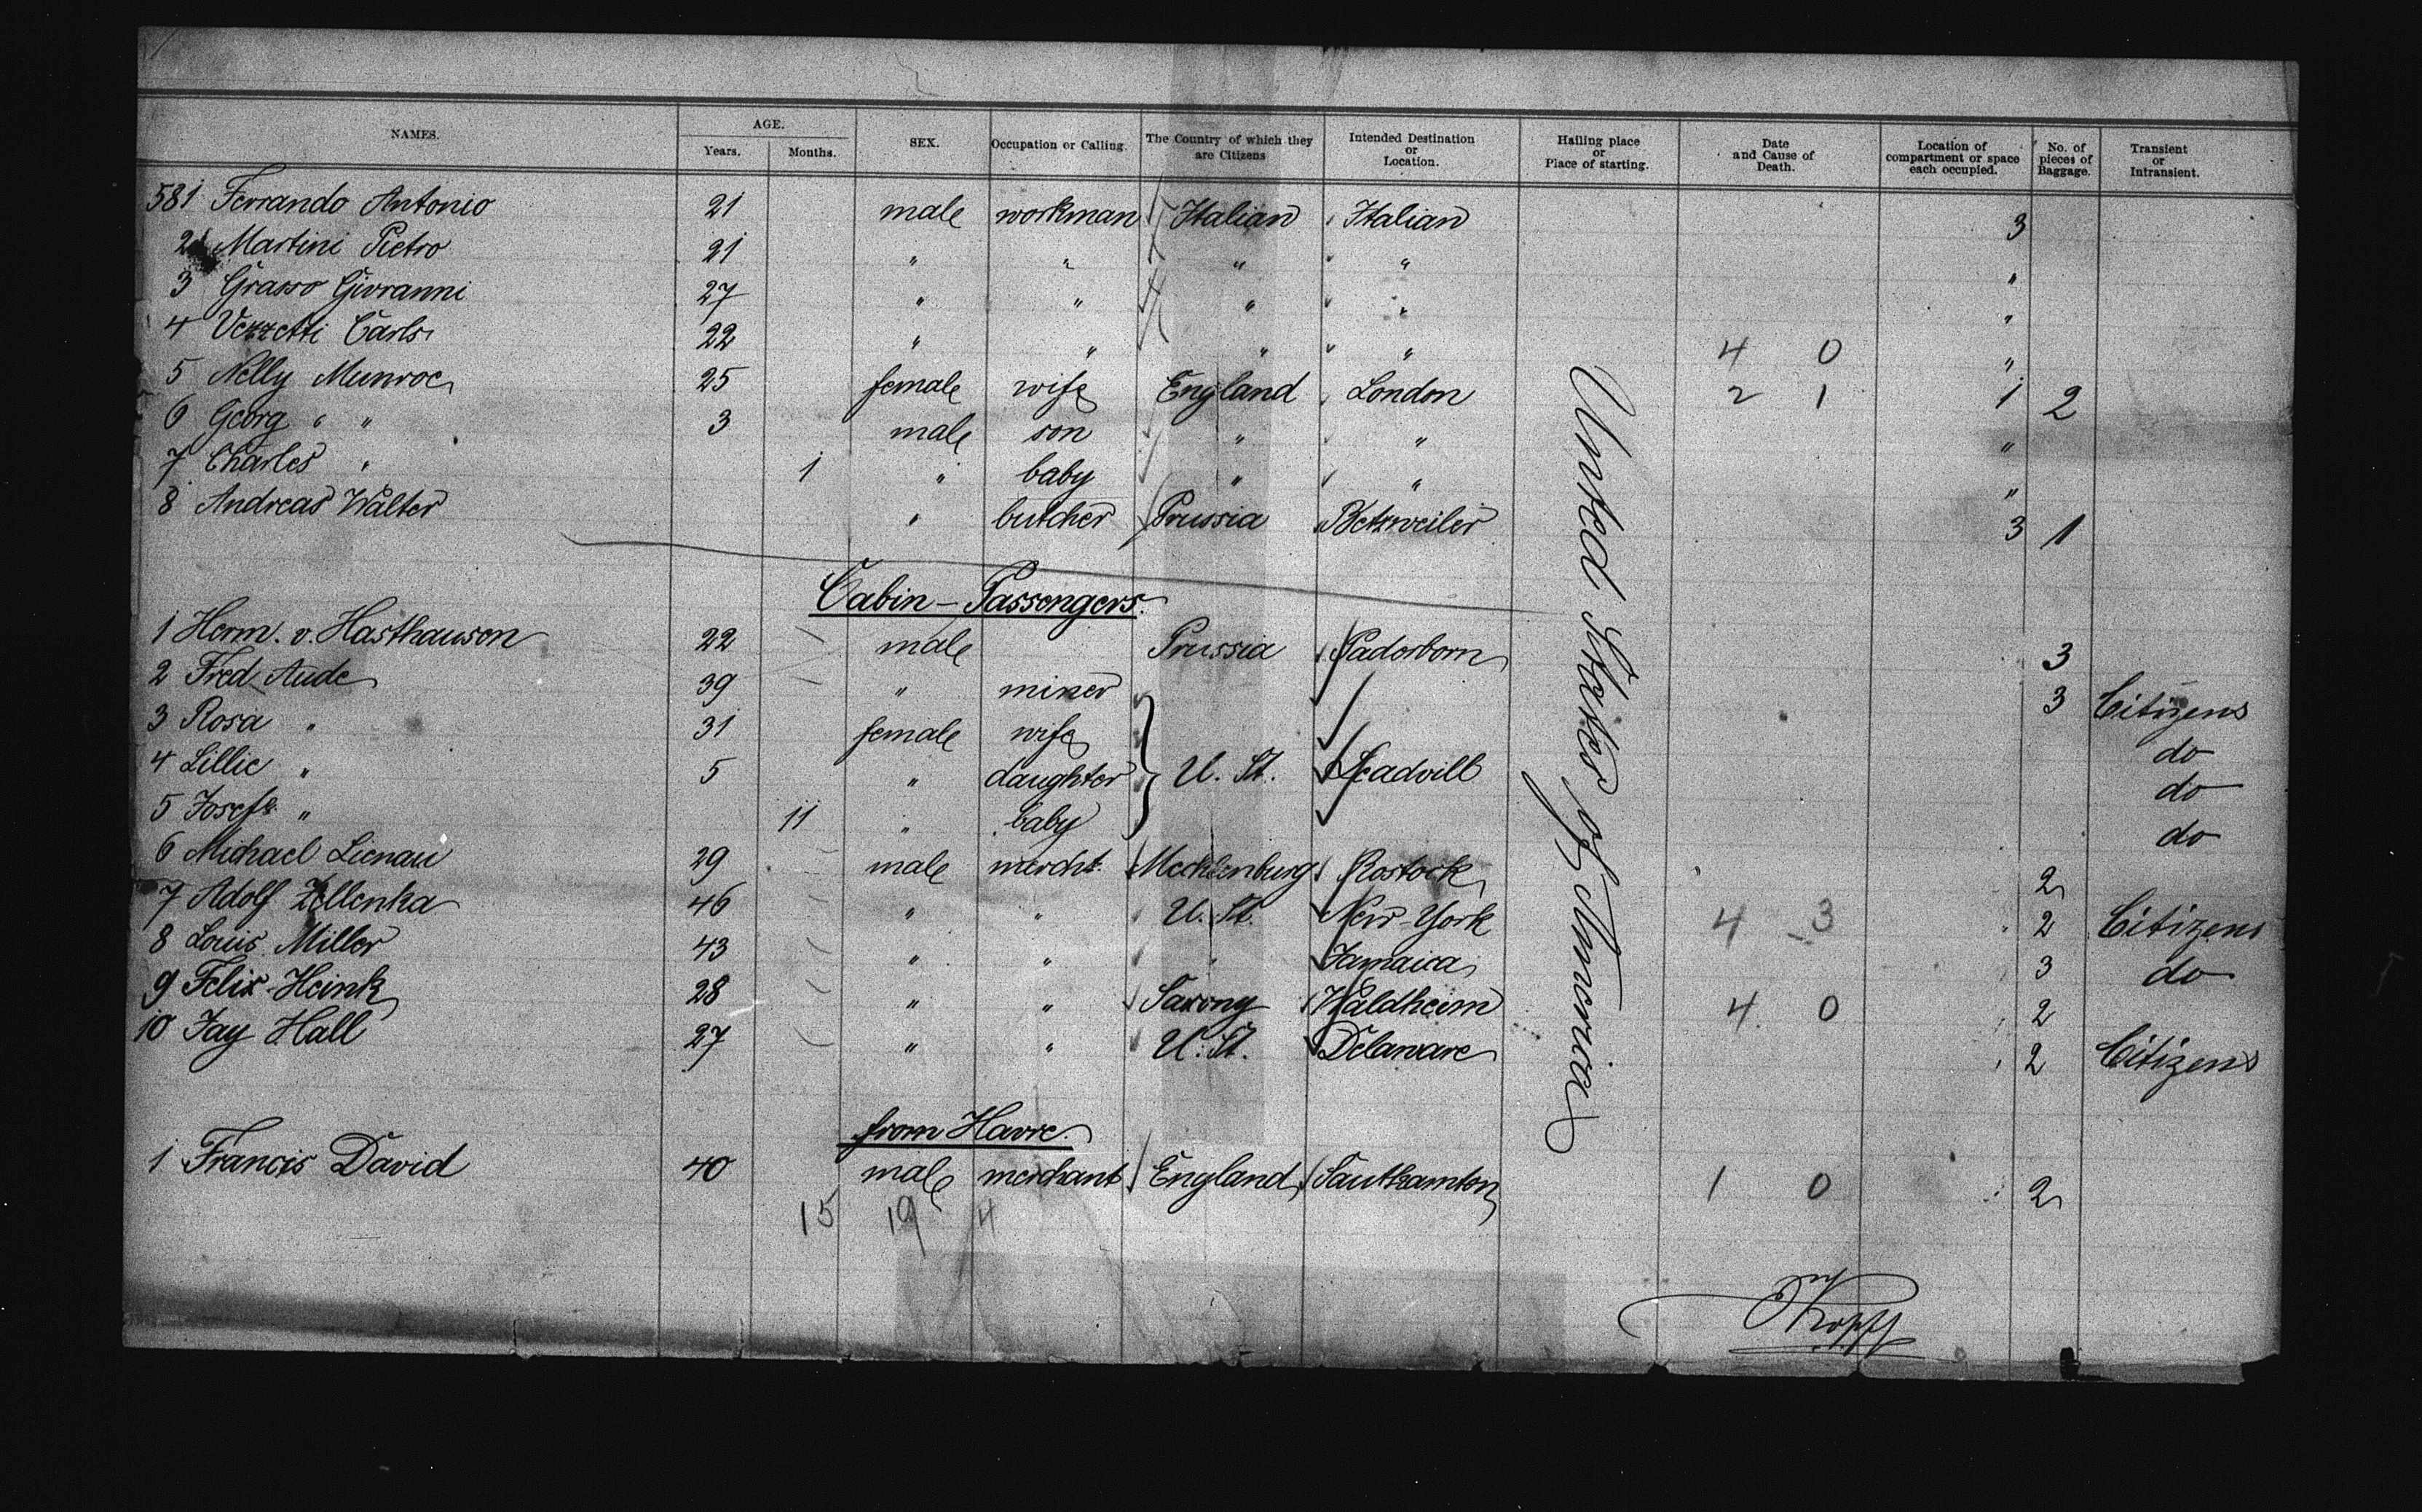 NAMES. AGE. Years. Months. SEX. Occupation or Calling. The Country of which they are Citizens Intended Destination or Location. Hailing place or Place of starting. Date and Cause of Death. Location of compartment or space each occupied. No. of pieces of Baggage. Transient or Intransient.
581 Ferrando Antonio 21 male workman Italian Italian 3
2 Martini Pietro 21 " " " " "
3 Grasso Giovanni 27 " " " " "
4 Vezzetti Carlo 22 " " " " 4 0 "
5 Nelly Munroe 25 female wife England London 2 1 1 2
6 Georg " " 3 male son " " "
7 Charles " 1 " baby " " "
8 Andreas Walter " butcher Prussia Betzweiler 3 1
Cabin-Passengers.
1 Herm. v. Hasthausen 22 male Prussia Paderborn 3
2 Fred Aude 39 " miner 3 Citizens
3 Rosa " 31 female wife do
4 Lillie " 5 " daughter U. St. Leadvill do
5 Josefe " 11 " baby do
6 Michael Lienau 29 male mercht. Mecklenburg Rostock 2
7 Adolf Zellenka 46 " " U. St. New-York 4 3 2 Citizens
8 Louis Miller 43 " " " Jamaica 3 do
9 Felix Heink 28 " " Saxony Waldheim 4 0 2
10 Jay Hall 27 " " U. St. Delaware 2 Citizens
United States of America
from Havre.
1 Francis David 40 male merchant England Southamton 1 0 2
15 19 4
Kopff